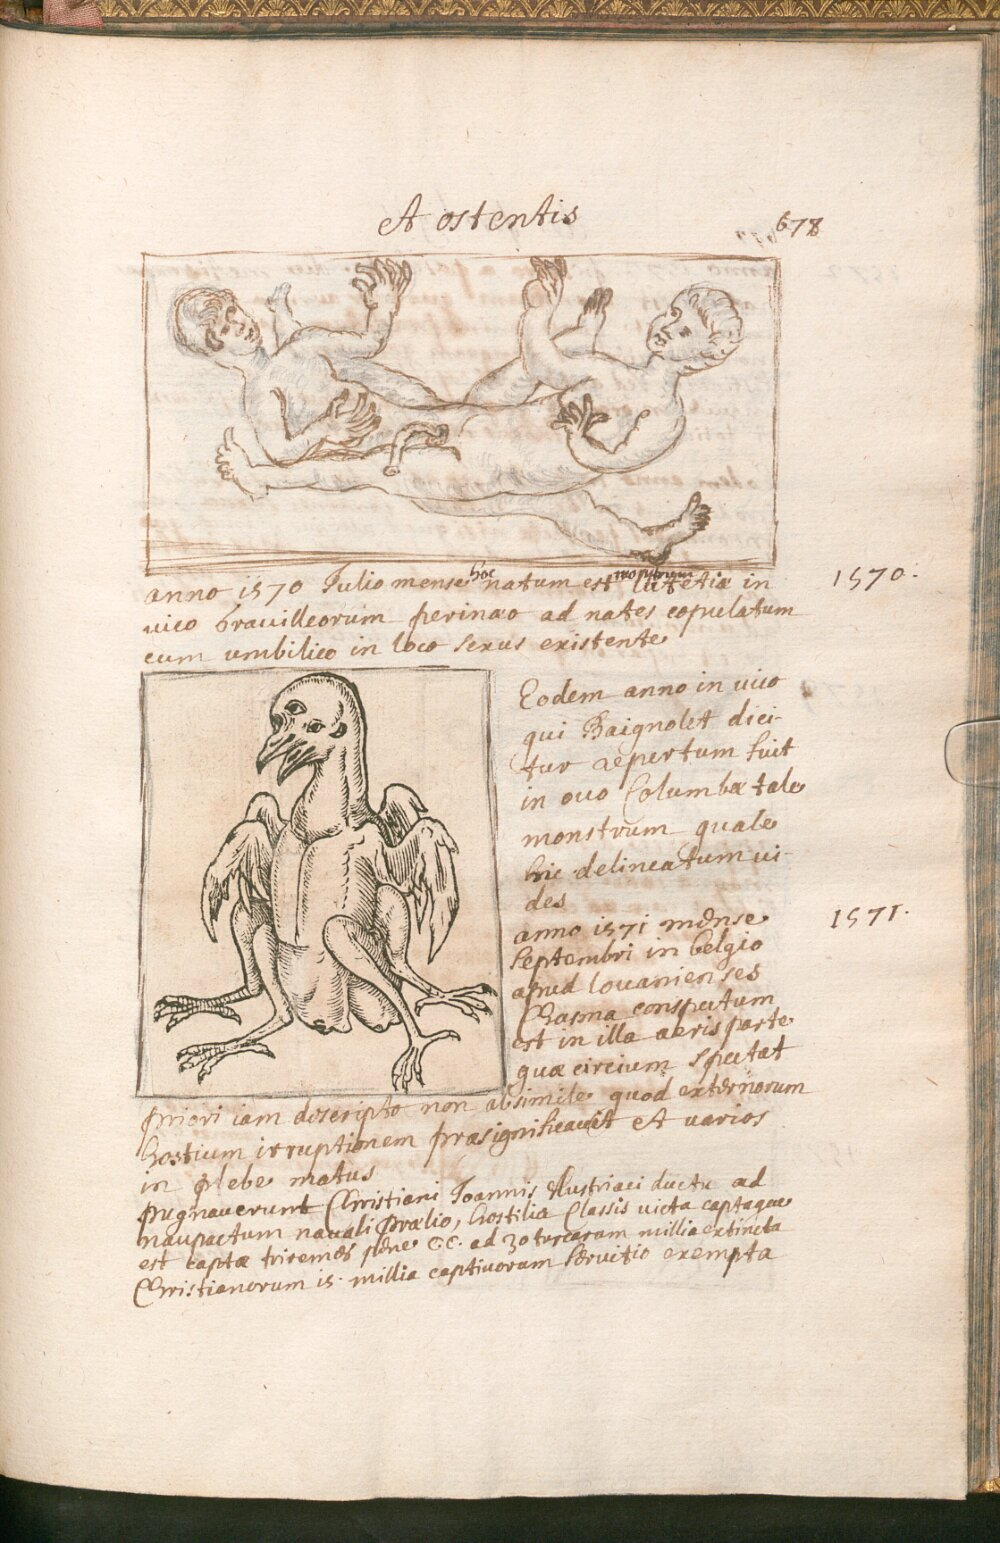 et ostentis
678
anno 1570 Julio mense hoc natum est monstrum lutetiæ in
vico Gravilleorum perinæo ad nates copulatum
cum umbilico in loco sexus existente
1570.
Eodem anno in vico
qui Baignolet dici-
tur apertum fuit
in ovo Columbæ tale
monstrum quale
hic delineatum vi-
des
anno 1571 mense
septembri in belgio
apud lovanienses
Chasma conspectum
est in illa aeris parte
quæ circium spectat
1571.
priori iam descripto non absimile quod externorum
hostium irruptionem præsignificavit et varios
in plebe motus
pugnaverunt Christiani Joannis Austriaci ductu ad
naupactum navali prælio, hostilis Classis victa captaque
est captæ triremes pene CC. ad 30 turcarum millia extincta
Christianorum 15. millia captivorum servitio exempta